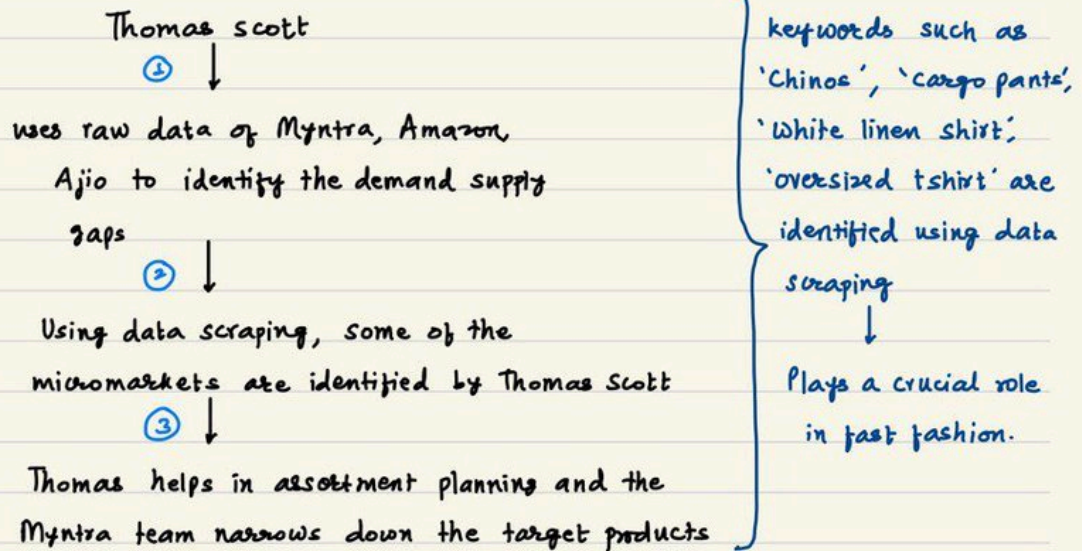 Thomas scott
①
uses raw data of Myntra, Amazon,
Ajio to identify the demand supply
gaps
②
Using data scraping, some of the
micromarkets are identified by Thomas Scott
③
Thomas helps in assortment planning and the
Myntra team narrows down the target products
keywords such as
'Chinos', 'cargo pants',
'White linen shirt',
'oversized tshirt' are
identified using data
scraping
Plays a crucial role
in fast fashion.